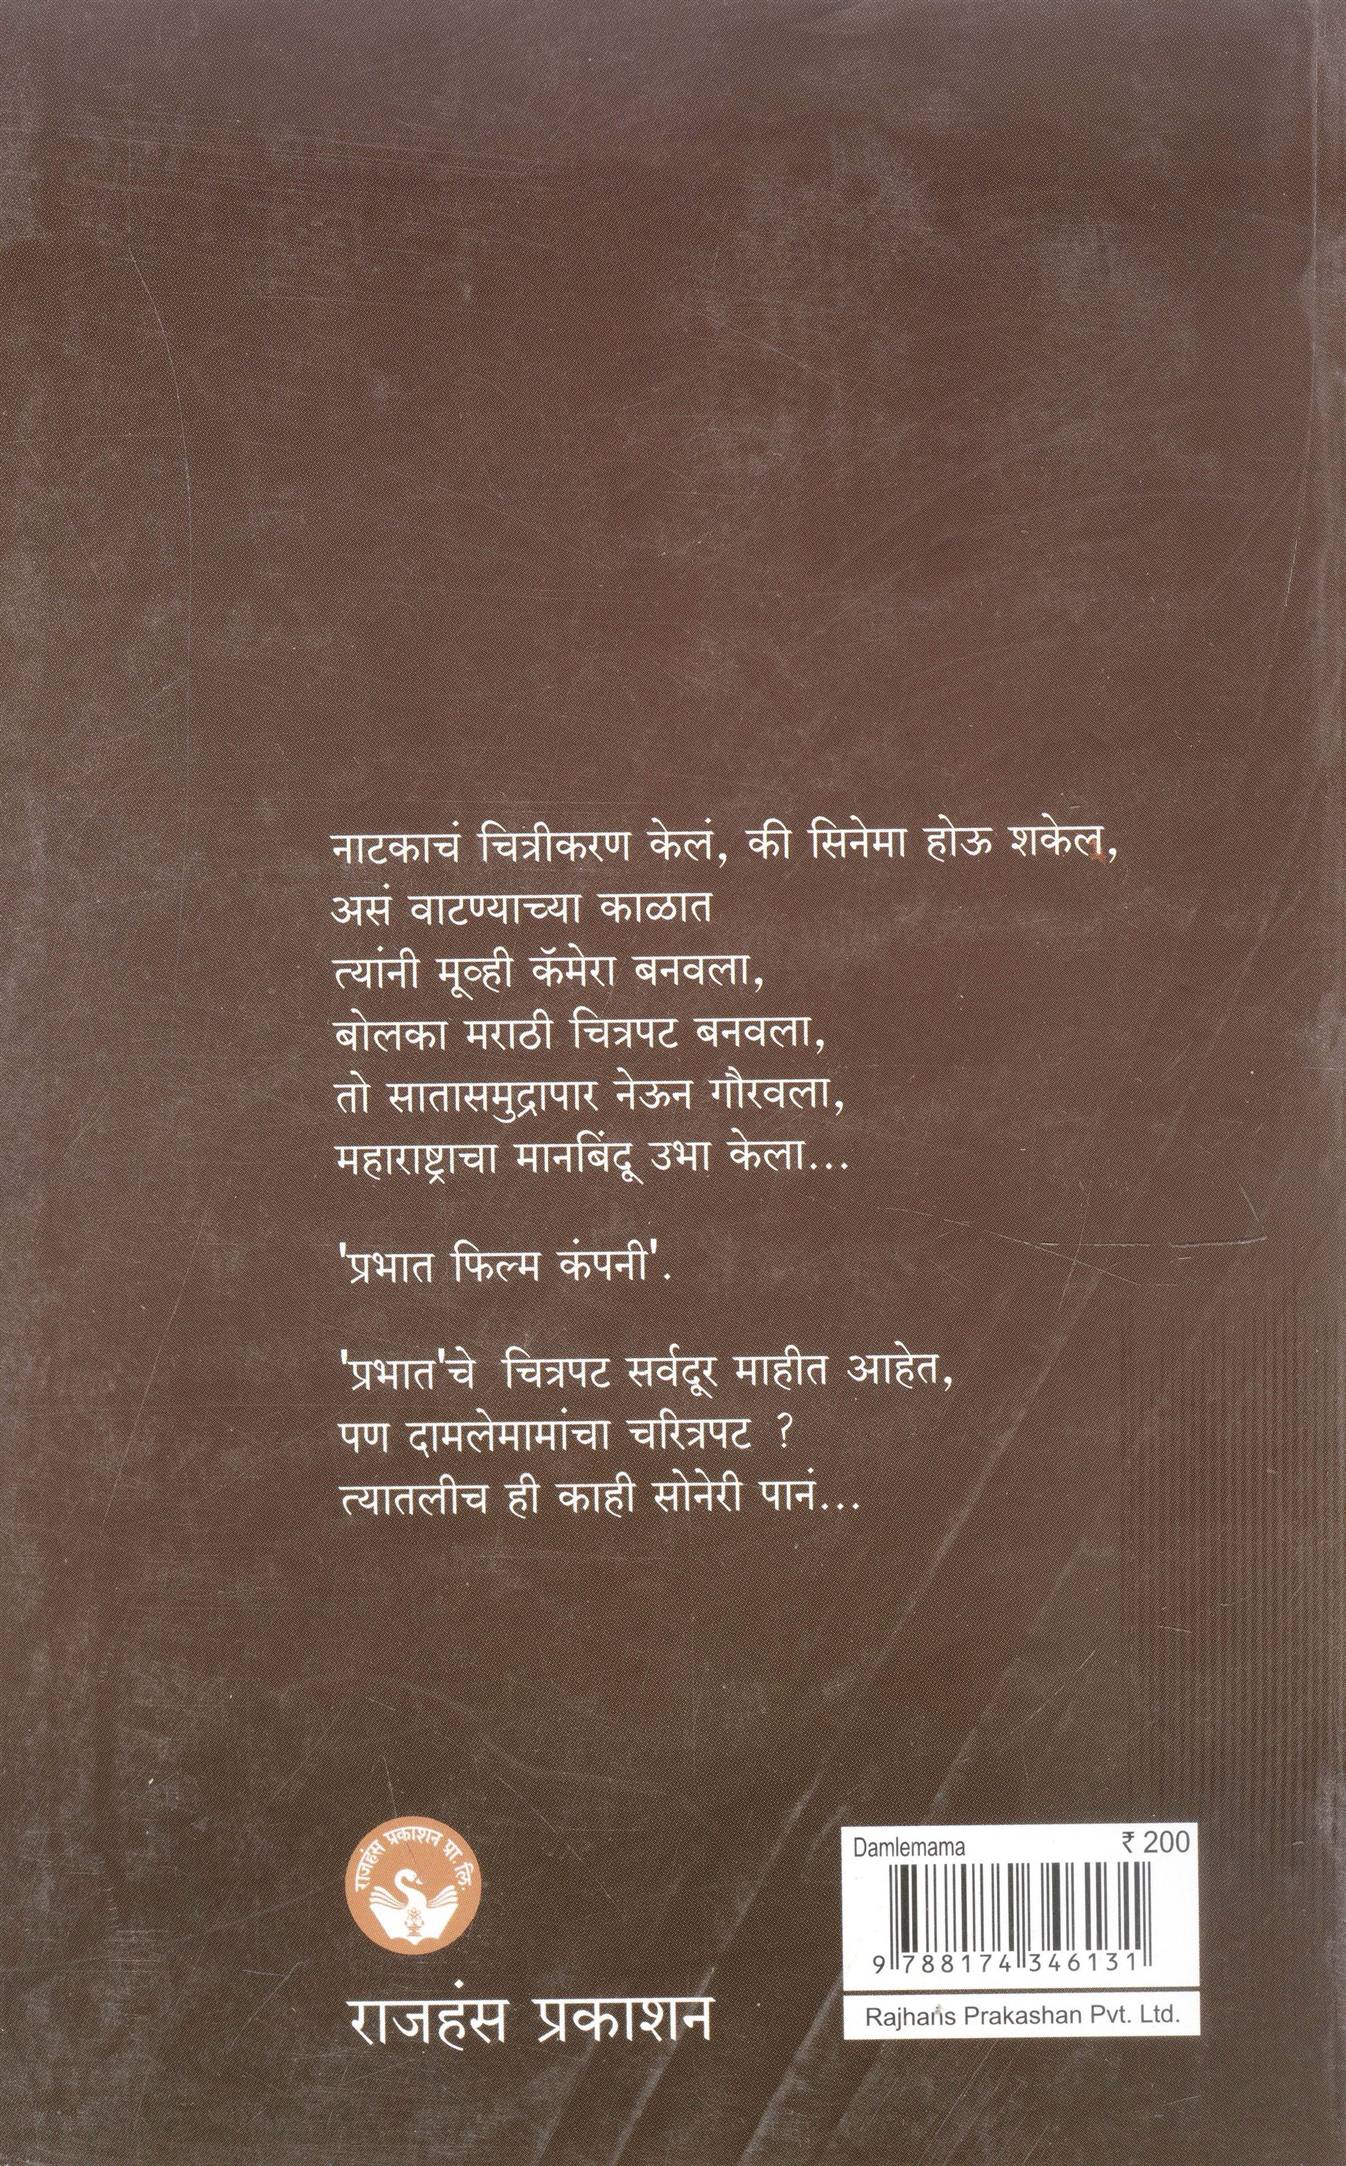 नाटकाचं चित्रीकरण केलं, की सिनेमा होऊ शकेल,
असं वाटण्याच्या काळात
त्यांनी मूव्ही कॅमेरा बनवला,
बोलका मराठी चित्रपट बनवला,
तो सातासमुद्रापार नेऊन गौरवला,
महाराष्ट्राचा मानबिंदू उभा केला...
'प्रभात फिल्म कंपनी'.
'प्रभात'चे चित्रपट सर्वदूर माहीत आहेत,
पण दामलेमामांचा चरित्रपट ?
त्यातलीच ही काही सोनेरी पानं...
राजहंस प्रकाशन प्रा. लि.
राजहंस प्रकाशन
Damlemama ₹ 200
9 788174 346131
Rajhans Prakashan Pvt. Ltd.